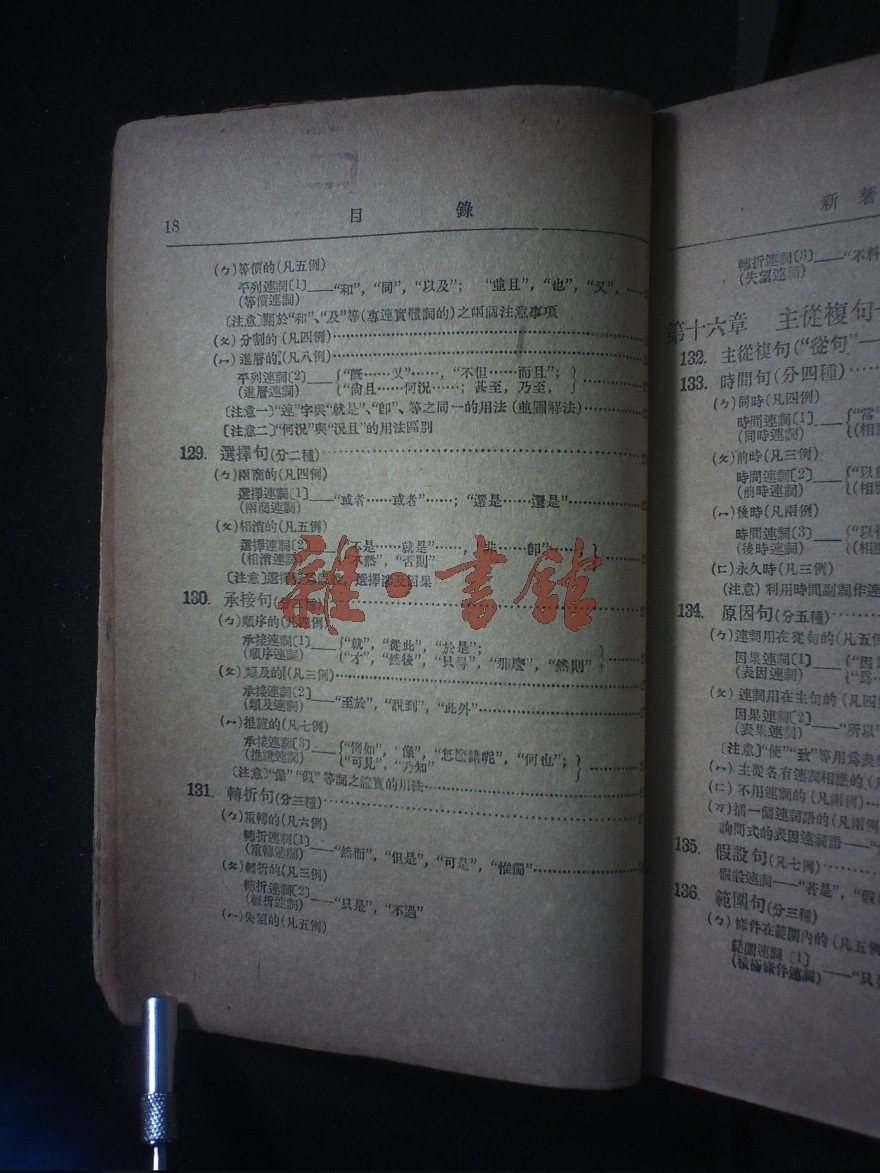 18 目 錄
(ㄅ)等價的(凡五例)
平列連詞〔1〕——“和”，“同”，“以及”； “並且”，“也”，“又”，……
(等價連詞)
〔注意〕關於“和”、“及”等(專連實體詞的)之兩個注意事項
(ㄆ)分割的(凡四例)
(ㄇ)進層的(凡八例)
平列連詞〔2〕 {“旣……又”……，“不但……而且”；}
(進層連詞) {“尙且……何況……；甚至，乃至，}
〔注意一〕“連”字與“就是”、“卽”、等之同一的用法(並圖解法)
〔注意二〕“何況”與“況且”的用法區別
129. 選擇句(分二種)
(ㄅ)兩商的(凡四例)
選擇連詞〔1〕——“或者……或者”……；“還是……還是”
(兩商連詞)
(ㄆ)相消的(凡五例)
選擇連詞〔2〕 “不是……就是”……，“非……卽”……}
(相消連詞) “不然”，“否則”
〔注意〕選擇 選擇涉及因果
雜·書館
130. 承接句
(ㄅ)順序的(凡四例)
承接連詞〔1〕 {“就”，“從此”，“於是”；
(順序連詞) {“才”，“然後”，“只得”，“那麼”，“然則”}
(ㄆ)類及的(凡三例)
承接連詞〔2〕——“至於”，“說到”，“此外”
(類及連詞)
(ㄇ)推證的(凡七例)
承接連詞〔3〕 {“例如”，“像”，“怎麼講呢”，“何也”；}
(推證連詞) {“可見”，“乃知”}
〔注意〕“像”“似”等詞之證實的用法
131. 轉折句(分三種)
(ㄅ)重轉的(凡六例)
轉折連詞〔1〕——“然而”，“但是”，“可是”，“惟獨”
(重轉連詞)
(ㄆ)輕折的(凡三例)
轉折連詞〔2〕——“只是”，“不過”
(輕折連詞)
(ㄇ)失望的(凡五例)
新著
轉折連詞〔3〕——“不料
(失望連詞)
第十六章 主從複句
132. 主從複句(“從句”——
133. 時間句(分四種)
(ㄅ)同時(凡四例)
時間連詞〔1〕——{“當
(同時連詞) {(相應
(ㄆ)前時(凡三例)
時間連詞〔2〕——{“以前
(前時連詞) {(相應
(ㄇ)後時(凡兩例)
時間連詞〔3〕——{“以後
(後時連詞) {(相應
(ㄈ)永久時(凡三例)
(注意)利用時間副詞作連
134. 原因句(分五種)
(ㄅ)連詞用在從句的(凡五例
因果連詞〔1〕——{“因
(表因連詞) {“爲
(ㄆ)連詞用在主句的(凡四例
因果連詞〔2〕——“所以”
(表果連詞)
〔注意〕“使”“致”等用爲表
(ㄇ)主從各有連詞相應的(凡
(ㄈ)不用連詞的(凡兩例)
(万)插一個連詞語的(凡兩例
詢問式的表因連詞語——“
135. 假設句(凡七例)
假設連詞——“若是”，“假
136. 範圍句(分三種)
(ㄅ)條件在範圍內的(凡五例
範圍連詞〔1〕——“只
(積極條件連詞)